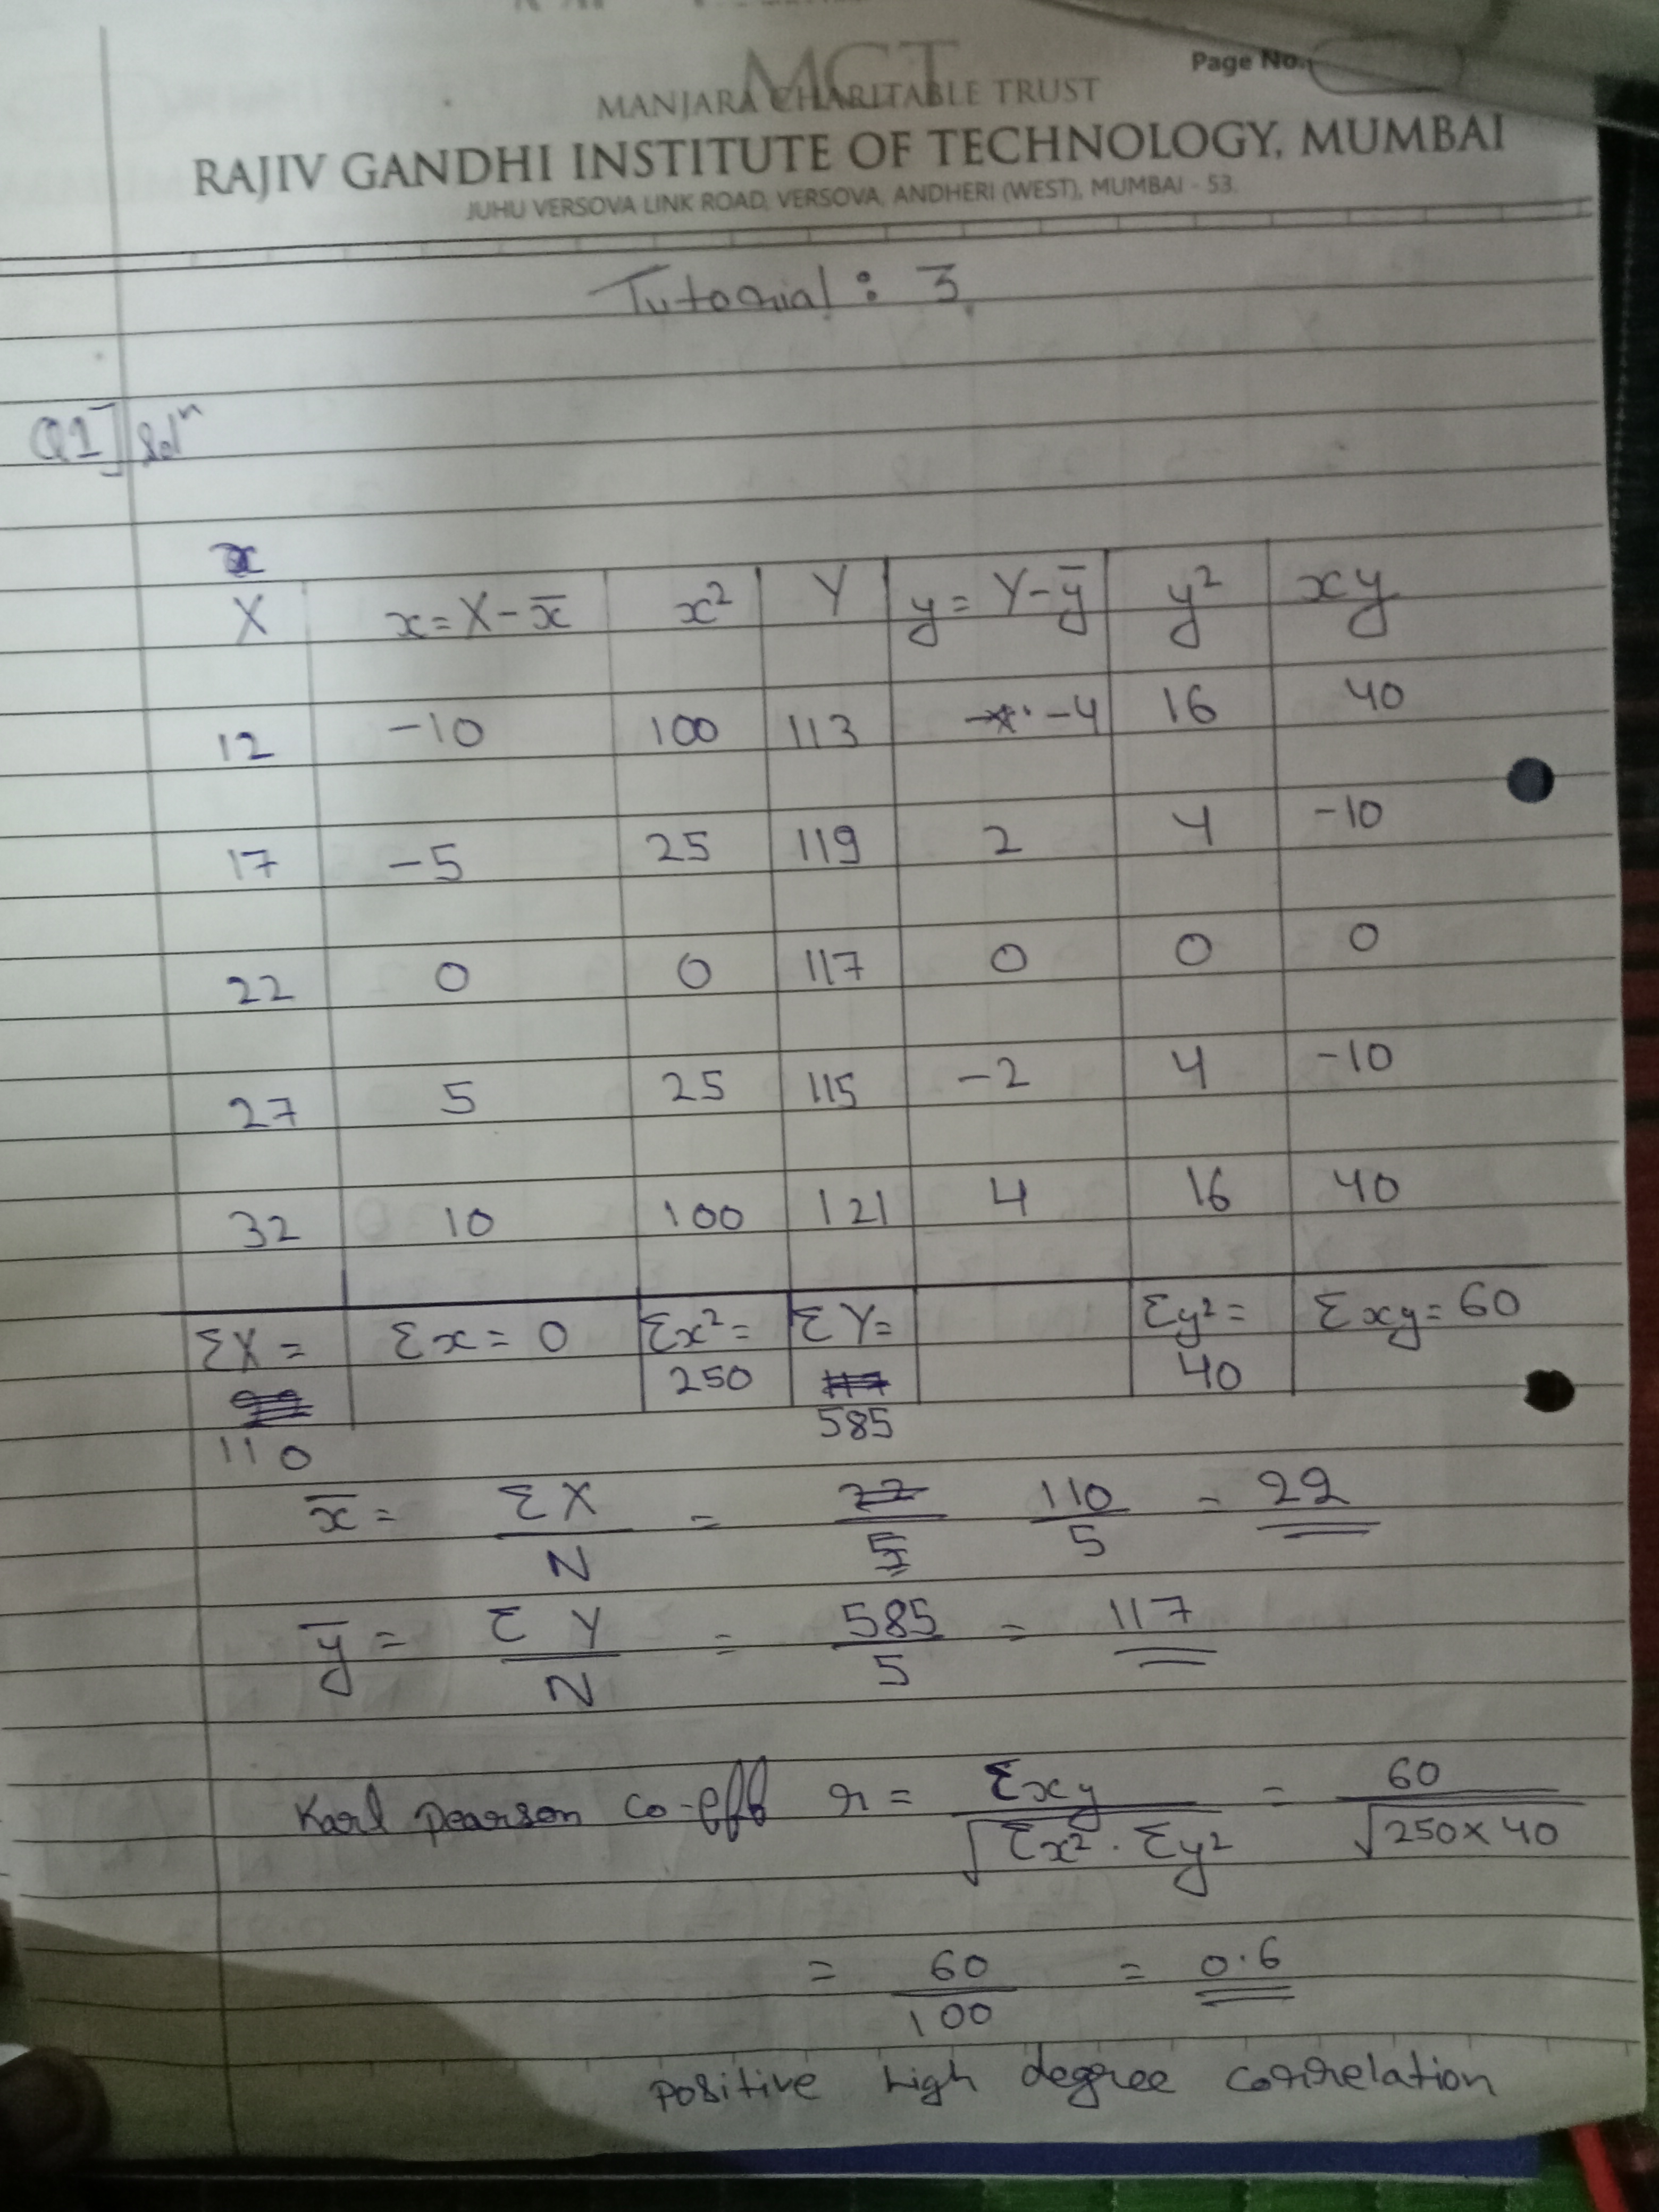 MCT
Page No.
MANJARA CHARITABLE TRUST
RAJIV GANDHI INSTITUTE OF TECHNOLOGY, MUMBAI
JUHU VERSOVA LINK ROAD, VERSOVA, ANDHERI (WEST), MUMBAI - 53.
Tutorial : 3
Q1] Solⁿ
X x = X - x̄ x² Y y = Y - ȳ y² xy
12 -10 100 113 -4 16 40
17 -5 25 119 2 4 -10
22 0 0 117 0 0 0
27 5 25 115 -2 4 -10
32 10 100 121 4 16 40
ΣX = 110 Σx = 0 Σx² = 250 ΣY = 585 Σy² = 40 Σxy = 60
x̄ = ΣX / N = 110 / 5 = 22
ȳ = ΣY / N = 585 / 5 = 117
Karl pearson co-eff r = Σxy / √Σx² · Σy² = 60 / √250 × 40
= 60 / 100 = 0.6
positive high degree correlation